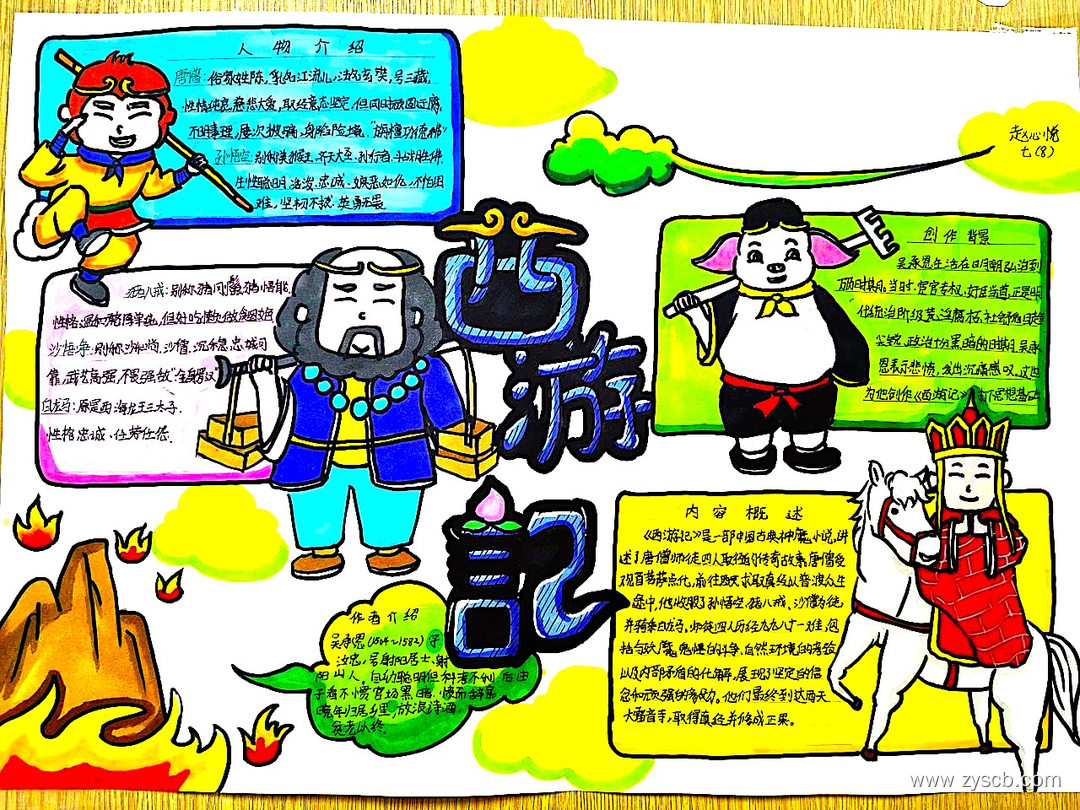 人物介绍
唐僧：俗家姓陈，乳名江流儿，法名玄奘，号三藏，
性情纯良，慈悲大爱，取经意志坚定，但同时顽固迂腐，
不明事理，屡次被骗，身陷险境。"旃檀功德佛"
孙悟空：别称美猴王、齐天大圣、孙行者、斗战胜佛。
生性聪明、活泼、忠诚、嫉恶如仇，不怕困
难，坚韧不拔，英勇无畏
赵心悦
七(8)
猪八戒：别称猪刚鬣、猪悟能，
性格：温和憨厚单纯，但好吃懒做
沙悟净：别称沙和尚，沙僧，沉稳忠诚可
靠，武艺高强，不畏强敌"金身罗汉"
白龙马：原是西海龙王三太子，
性格忠诚、任劳任怨。
西游記
创作背景
吴承恩生活在日明朝弘治到
万历时期。当时，宦官专权，奸臣当道，正是明
政治十分黑暗的时期，吴承
恩表示悲愤，发出沉痛感叹。这些
为他创作《西游记》打下思想基础
作者介绍
吴承恩(1504~1582)字
汝忠，号射阳居士，射
阳山人。自幼聪明但科考不利，后由
于看不惯官场黑暗，愤而辞官
晚年归居乡里，放浪诗酒，
贫老以终。
内容概述
《西游记》是一部中国古典神魔小说，讲
述了唐僧师徒四人取经的传奇故事，唐僧受
观音菩萨点化，前往西天求取真经以普渡众生
途中，他收服了孙悟空、猪八戒、沙僧为徒
并骑乘白龙马，师徒四人历经九九八十一难，包
括与妖魔鬼怪的斗争、自然环境的考验
以及内部矛盾的化解，展现了坚定的信
念和顽强的毅力。他们最终到达西天
大雷音寺，取得真经并修成正果。
www.zyscb.com